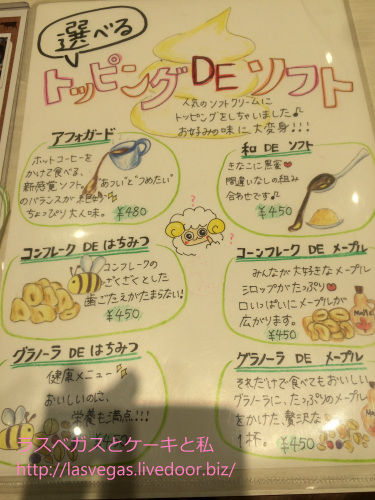 選べる
トッピング DE ソフト
人気のソフトクリームに
トッピングをしちゃいました♪
お好みの味に大変身!!!
アフォガード
ホットコーヒーを
かけて食べる、
新感覚ソフト。
"あつい"と"つめたい"
のバランスが絶妙
ちょっぴり大人味。
¥480
和 DE ソフト
きなこに黒蜜♥
間違いなしの組み
合わせです♪
¥450
コンフレーク DE はちみつ
コンフレークの
ざくざくとした
歯ごたえがたまらない!
¥450
コーンフレーク DE メープル
みんなが大好きなメープル
シロップがたっぷり♥
口いっぱいにメープルが
広がります。
¥450
グラノーラ DE はちみつ
健康メニュー
おいしいのに、
栄養も満点!!!
¥450
グラノーラ DE メープル
それだけで食べてもおいしい
グラノーラに、たっぷりのメープル
をかけた、贅沢な
1杯。
¥450
ラスベガスとケーキと私
http://lasvegas.livedoor.biz/